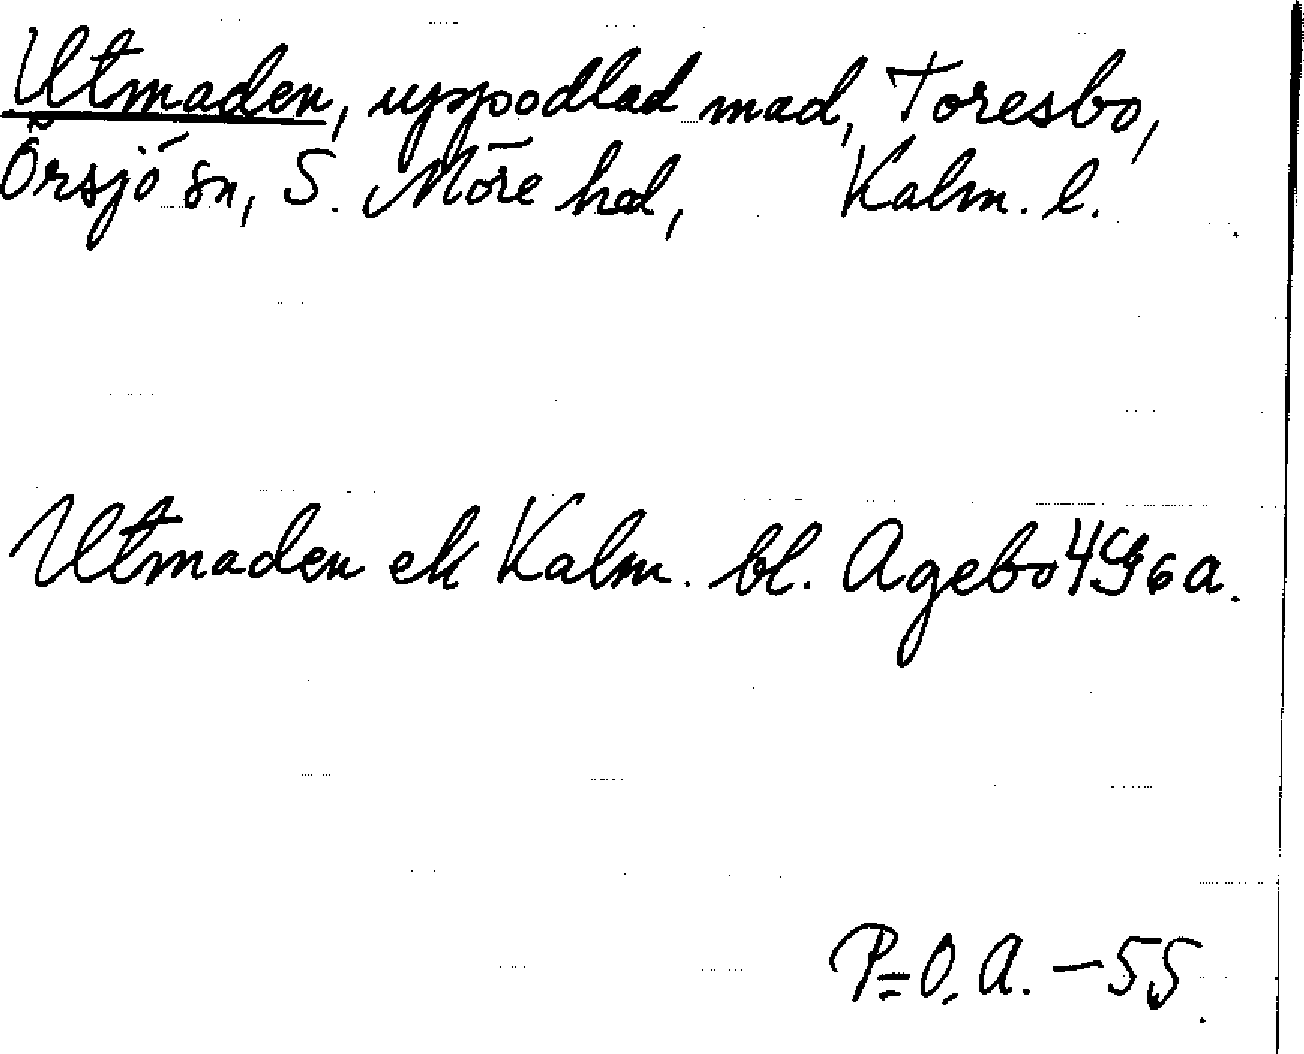 Utmaden, uppodlad mad, Toresbo,
Örsjö sn, S. Möre hd, Kalm. l.
Utmaden ek Kalm. bl. Agebo 4G6a.
P-O. A. -55